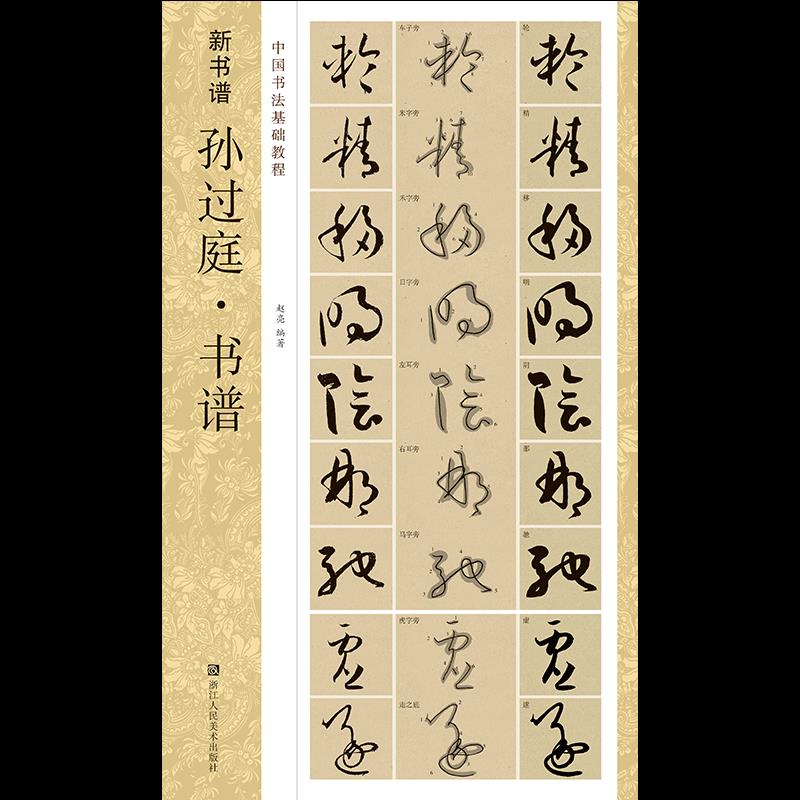 新书谱
孙过庭·书谱
中国书法基础教程
赵亮 编著
浙江人民美术出版社
车字旁
轮
米字旁
精
禾字旁
移
日字旁
明
左耳旁
阴
右耳旁
那
马字旁
驰
虎字旁
虚
走之底
遂